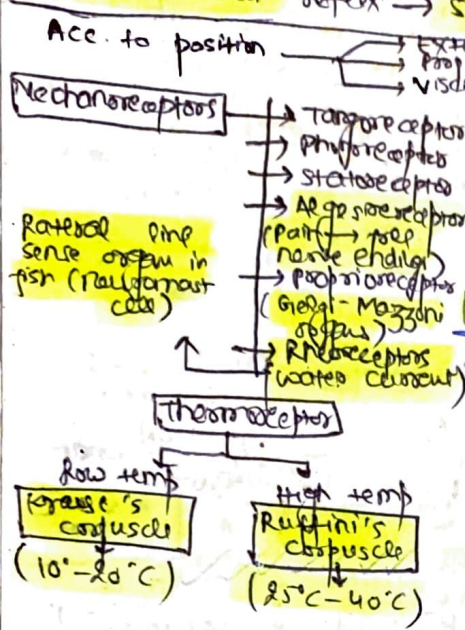 Acc. to position
Mechanoreceptors
Tangoreceptor
Phonoreceptor
Statoreceptor
Algesireceptor
(Pain → free
nerve ending)
Proprioreceptor
(Golgi-Mazzoni
organs)
Rheoreceptors
(water current)
Lateral line
sense organ in
fish (Neuromast
cell)
Thermoreceptor
Low temp
Krause's
corpuscle
(10°-20°C)
High temp
Ruffini's
corpuscle
(25°C-40°C)